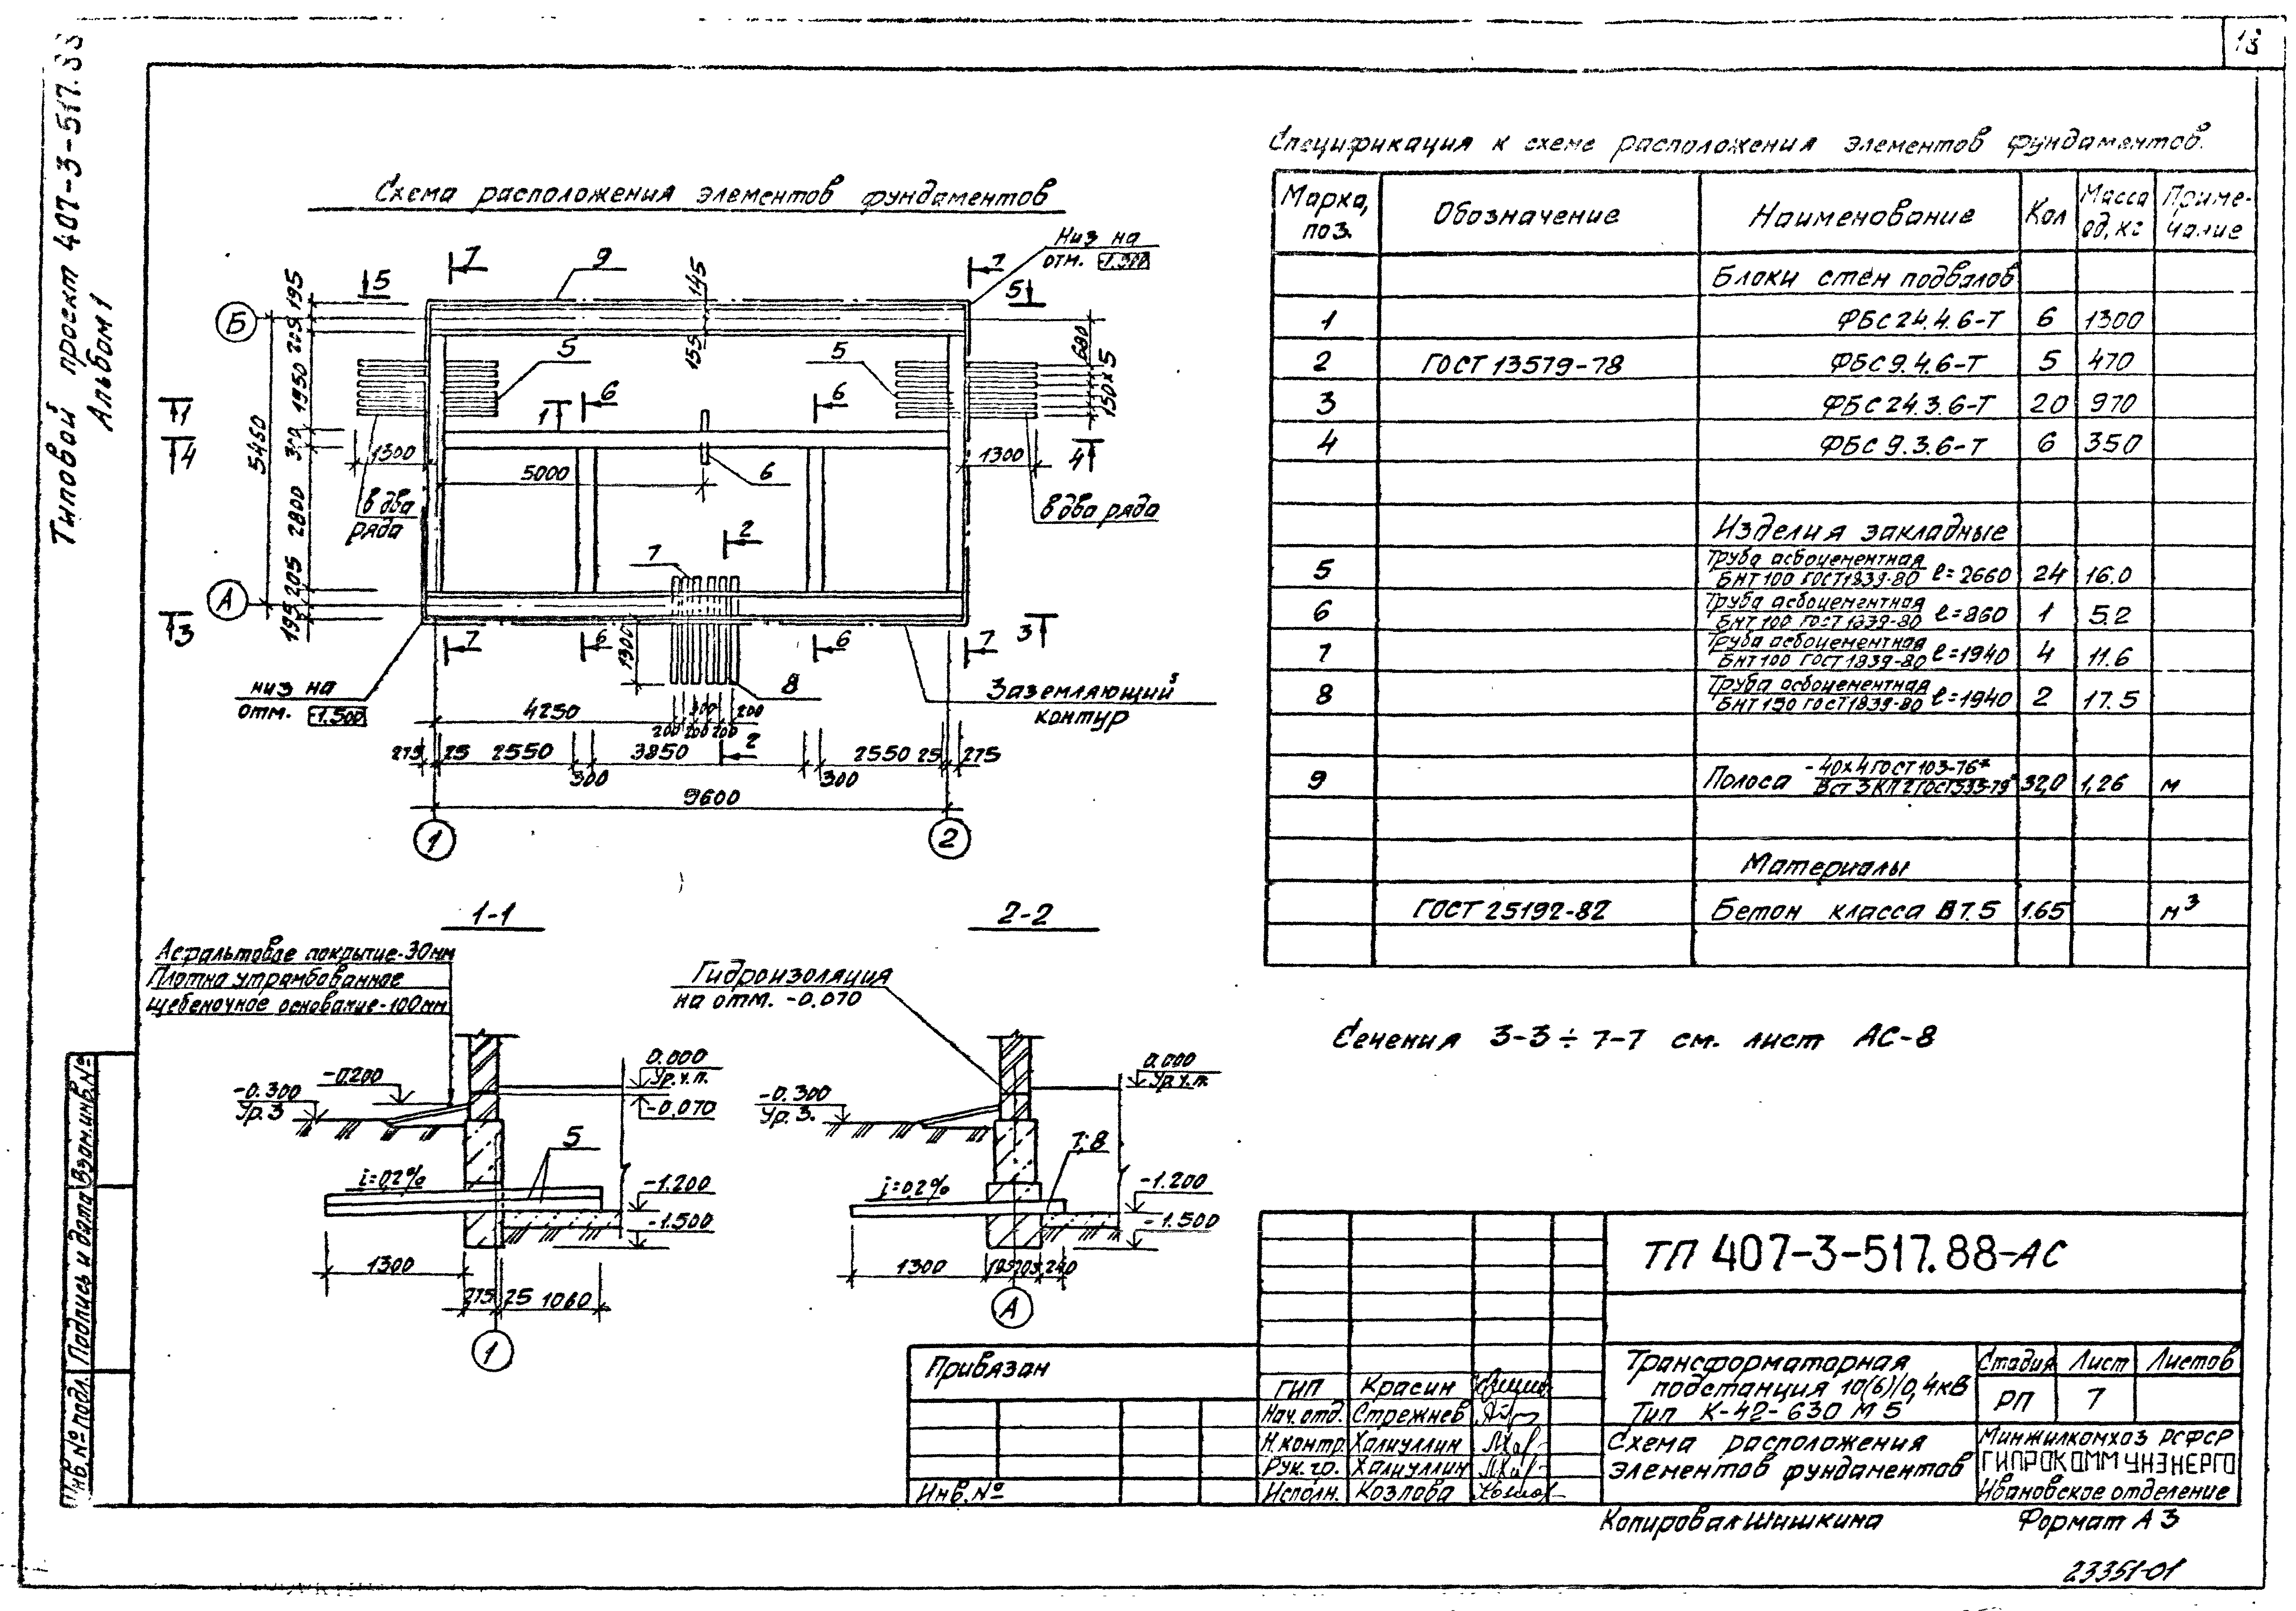 13
Типовой проект 407-3-517.88
Альбом 1
Схема расположения элементов фундаментов
Низ на
отм. -1.500
7
9
7
5
5
Б
А
195
225
1950
300
2800
205
195
5450
145
155
680
150×5
5
5
6
6
1
1
4
4
1300
1300
5000
6
в два
ряда
в два ряда
2
7
3
3
7
6
6
7
1300
8
низ на
отм. -1.500
Заземляющий
контур
4250
300
200
200 200 200
275 25 2550 3850 2 2550 25 275
300 300
9600
1 2
Спецификация к схеме расположения элементов фундаментов.
Марка, поз. Обозначение Наименование Кол Масса ед, кг Примечание
Блоки стен подвалов
1 ФБС 24.4.6-Т 6 1300
2 ГОСТ 13579-78 ФБС 9.4.6-Т 5 470
3 ФБС 24.3.6-Т 20 970
4 ФБС 9.3.6-Т 6 350
Изделия закладные
5 Труба асбоцементная БНТ 100 ГОСТ 1839-80 ℓ=2660 24 16.0
6 Труба асбоцементная БНТ 100 ГОСТ 1839-80 ℓ=860 1 5.2
7 Труба асбоцементная БНТ 100 ГОСТ 1839-80 ℓ=1940 4 11.6
8 Труба асбоцементная БНТ 150 ГОСТ 1839-80 ℓ=1940 2 17.5
9 Полоса -40×4 ГОСТ 103-76* ВСт 3 КП 2 ГОСТ 535-79* 32,0 1,26 м
Материалы
ГОСТ 25192-82 Бетон класса В 7.5 1.65 м³
Сечения 3-3 ÷ 7-7 см. лист АС-8
1-1
Асфальтовое покрытие-30мм
Плотна утрамбованное
щебеночное основание-100мм
-0.200
-0.300
Ур.З
0.000
Ур.ч.п.
-0.070
5
i=0,2%
-1.200
-1.500
1300
275 25 1060
1
2-2
Гидроизоляция
на отм. -0.070
-0.300
Ур.З.
0.000
Ур.ч.п.
7;8
i=0,2%
-1.200
-1.500
1300 195 205 240
А
Взам.инв.№
Подпись и дата
Инв.№ подл.
Привязан
Инв.№
ТП 407-3-517.88-АС
ГИП Красин
Нач.отд. Стрежнев
Н.контр. Халиуллин
Рук.гр. Халиуллин
Исполн. Козлова
Трансформаторная
подстанция 10(6)/0,4кВ
Тип К-42-630 М5
Стадия Лист Листов
РП 7
Схема расположения
элементов фундаментов
Минжилкомхоз РСФСР
ГИПРОКОММУНЭНЕРГО
Ивановское отделение
Копировал Шишкина
Формат А3
23351-01